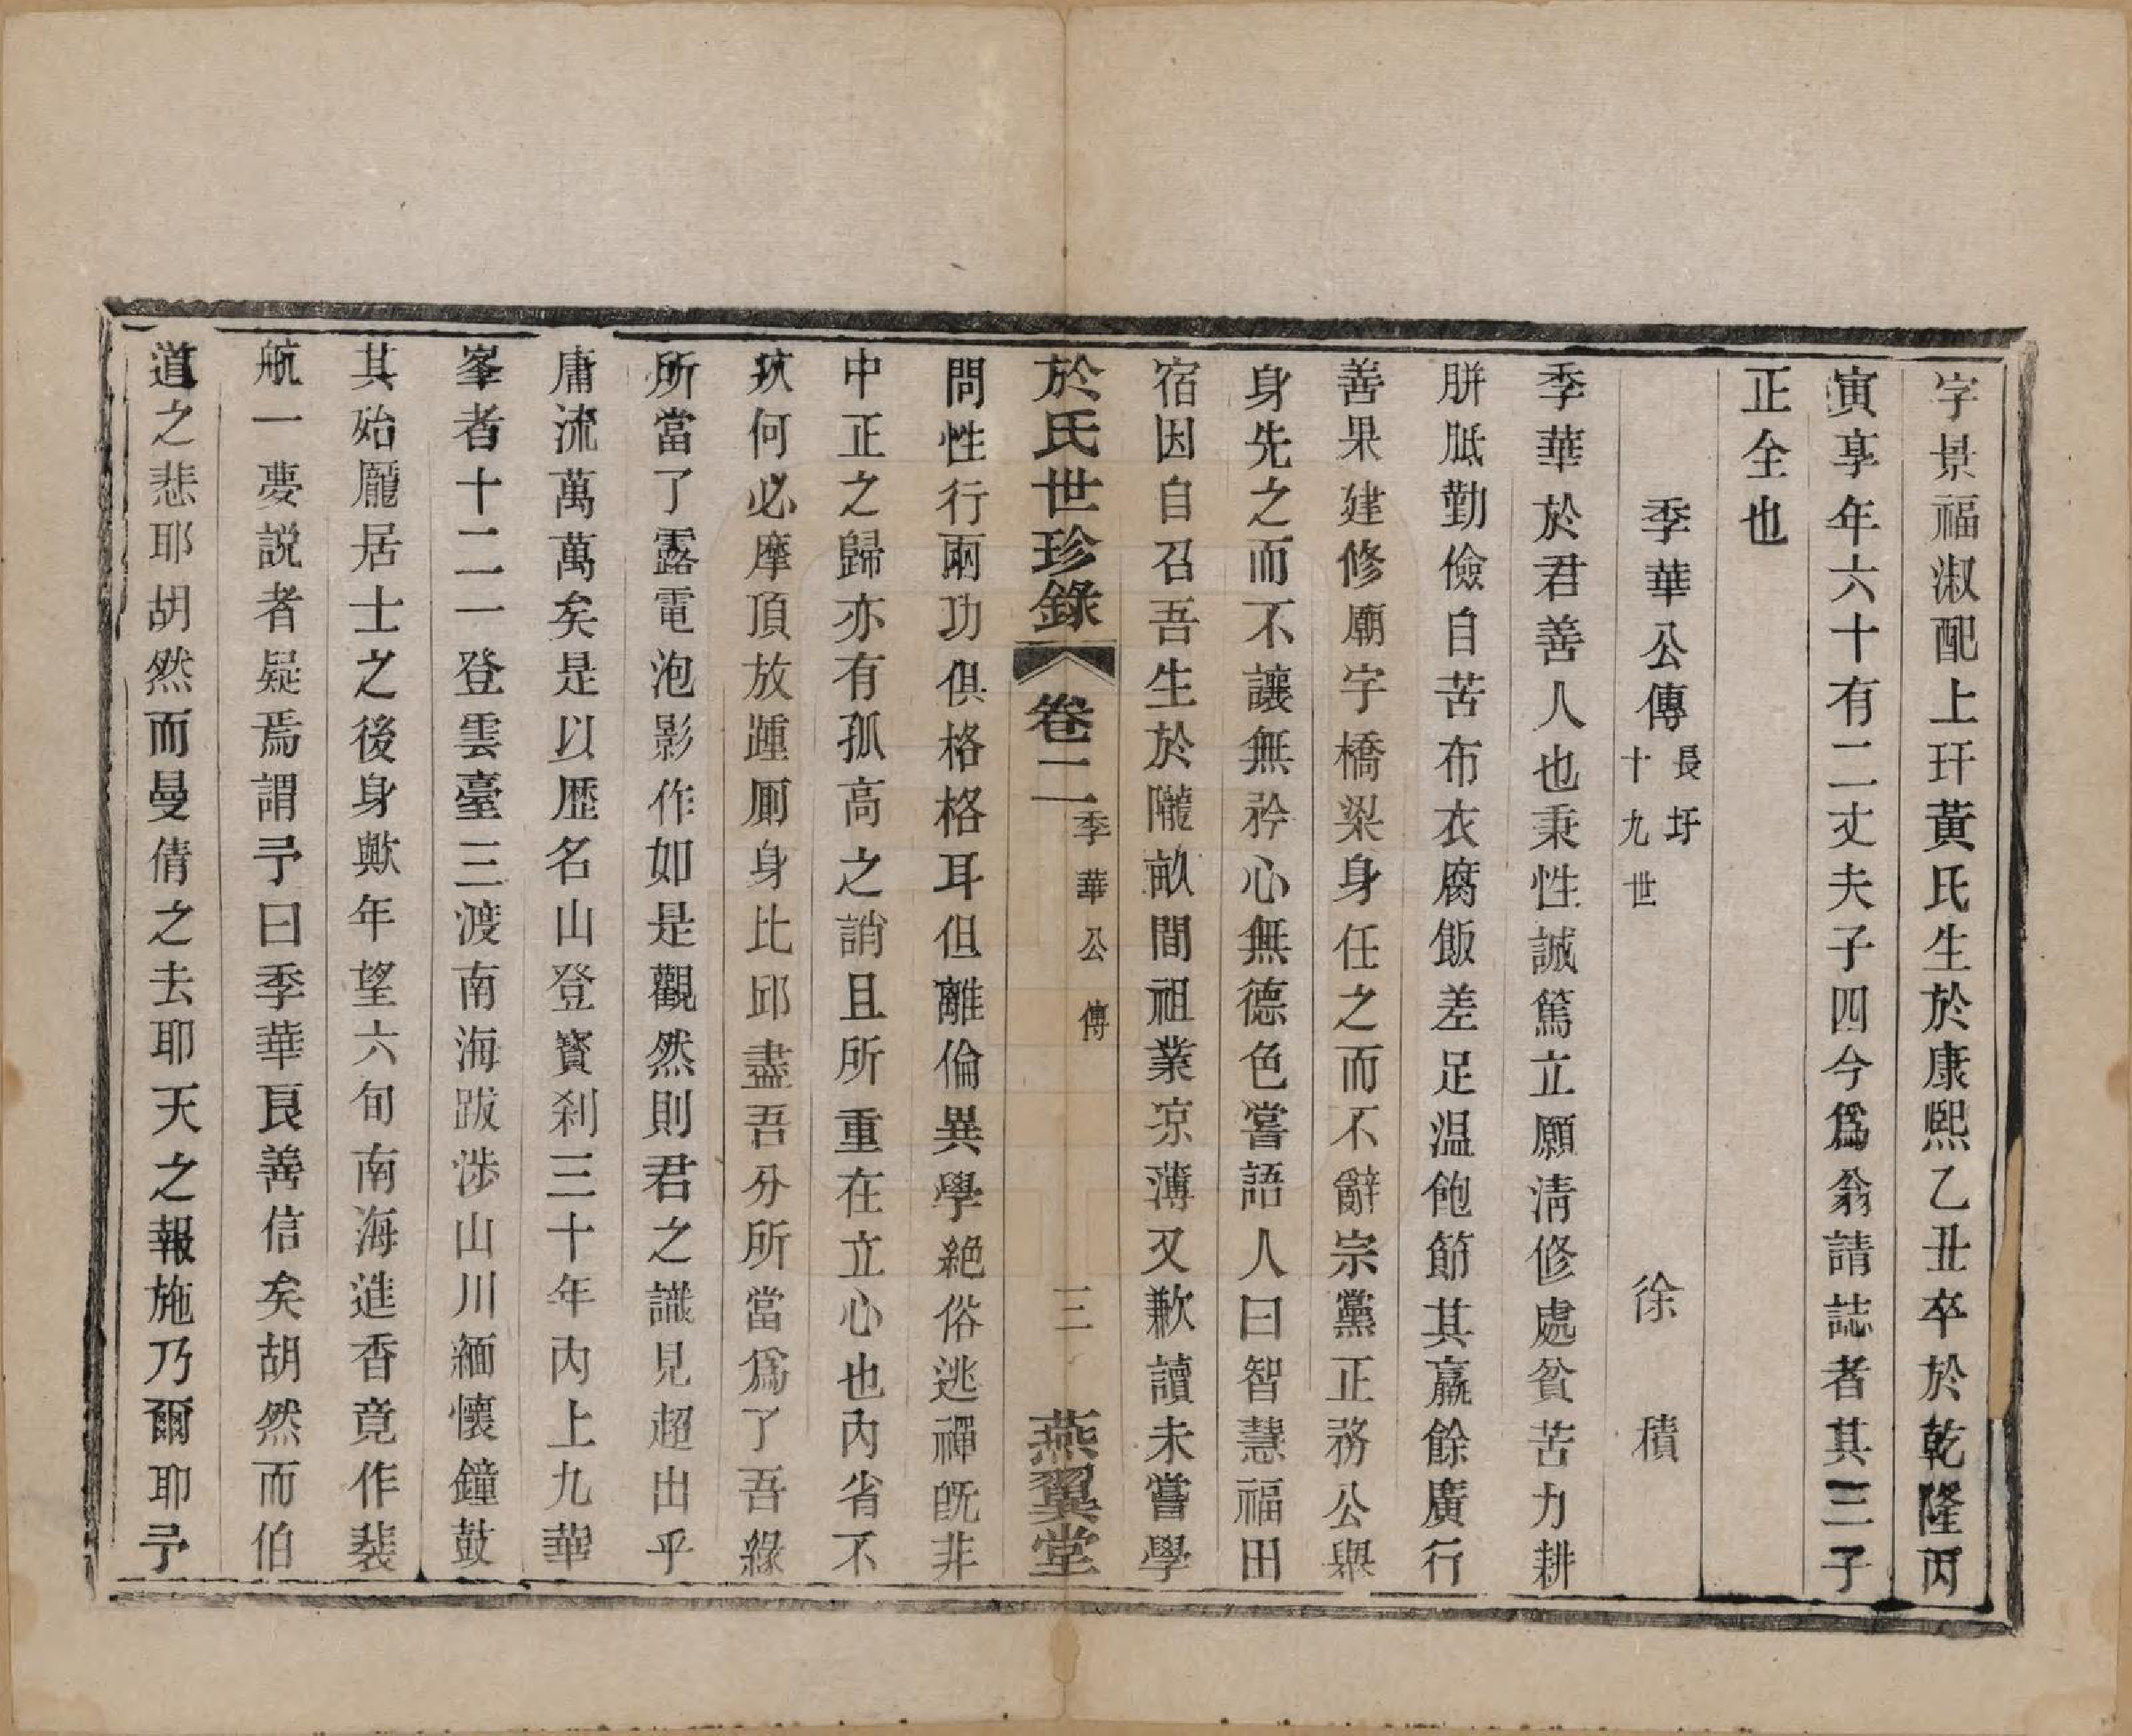 字景福淑配上玕黃氏生於康熙乙丑卒於乾隆丙
寅享年六十有二丈夫子四今爲翁請誌者其三子
正全也
季華公傳
長圩
十九世
徐積
季華於君善人也秉性誠篤立願淸修處貧苦力耕
胼胝勤儉自苦布衣腐飯差足温飽節其贏餘廣行
善果建修廟宇橋梁身任之而不辭宗黨正務公與
身先之而不讓無矜心無德色嘗語人曰智慧福田
宿因自召吾生於隴畝間祖業凉薄又歉讀未嘗學
於氏世珍錄
卷二
季華公傳
三
燕翼堂
問性行兩功俱格格耳但離倫異學絕俗逃禪旣非
中正之歸亦有孤高之誚且所重在立心也內省不
疚何必摩頂放踵厠身比邱盡吾分所當爲了吾緣
所當了露電泡影作如是觀然則君之識見超出乎
庸流萬萬矣是以歷名山登寳刹三十年內上九華
峯者十二一登雲臺三渡南海跋涉山川緬懷鐘鼓
其殆龐居士之後身歟年望六旬南海進香竟作裴
航一夢説者疑焉謂予曰季華良善信矣胡然而伯
道之悲耶胡然而曼倩之去耶天之報施乃爾耶予